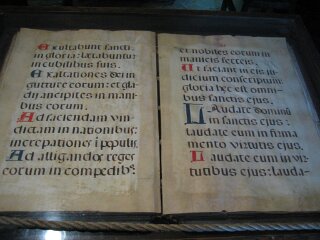 Exultabunt sancti
in gloria: lætabuntur
in cubilibus suis.
Exaltationes Dei in
gutture eorum: et gla
dij ancipites in mani
bus eorum.
Ad faciendam vin
dictam in nationibus:
increpationes i populis
Ad alligandos reges
eorum in compedibꝰ:
et nobiles eorum in
manicis ferreis.
Ut faciant in eis ju
dicium conscriptum:
gloria hæc est omni
bus sanctis ejus.
Laudate dominū
in sanctis ejus:
laudate eum in firma
mento virtutis ejus.
Laudate eum in vir
tutibus ejus: lauda